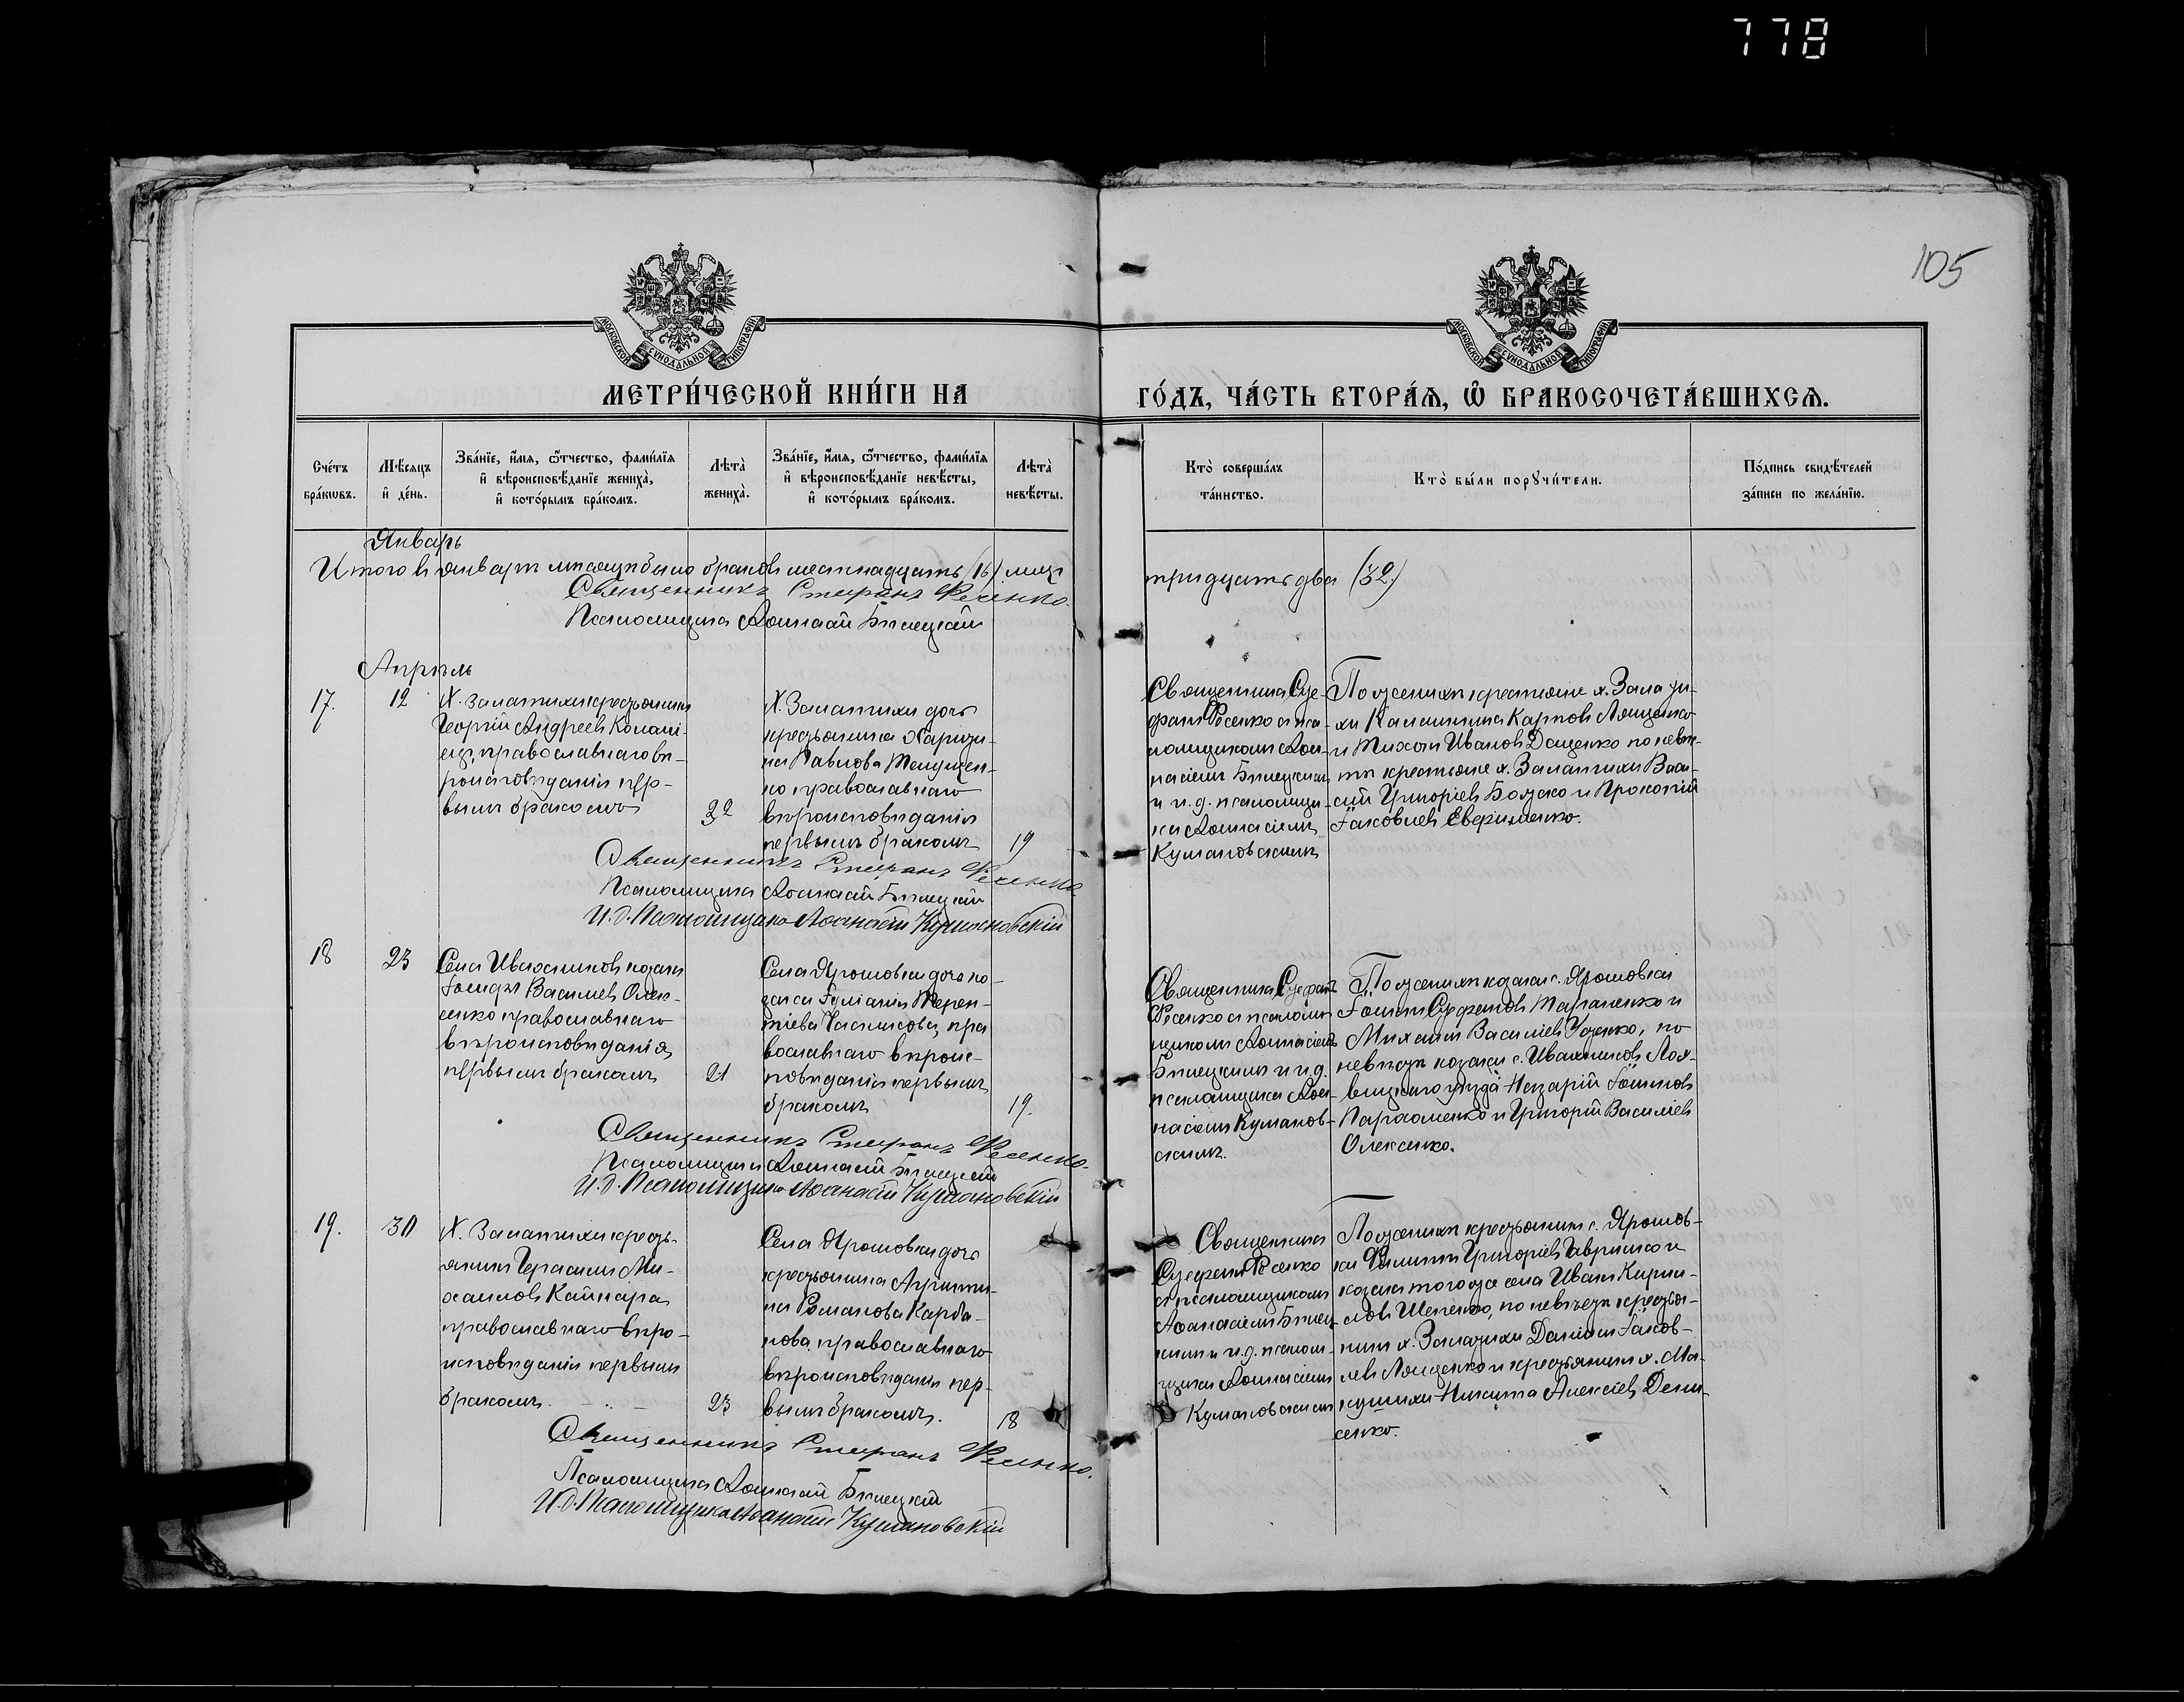 778
105
МОСКОВСКОЙ СѴНОДАЛЬНОЙ ТИПОГРАФІИ
МОСКОВСКОЙ СѴНОДАЛЬНОЙ ТИПОГРАФІИ
МЕТРИ́ЧЕСКОЙ КНИ́ГИ НА
ГО́ДЪ, ЧА́СТЬ ВТОРА́Я, Ѽ БРАКОСОЧЕТА́ВШИХСЯ.
Сче́тъ
бра́кѡвъ.
Мѣ́сяцъ
и҆ де́нь.
Зва́нїе, и҆́мя, ѻ҆́тчество, фами́лїя
и҆ вѣроисповѣ́данїе жениха̀,
и҆ кото́рымъ бра́комъ.
Лѣта̀
жениха̀.
Зва́нїе, и҆́мя, ѻ҆́тчество, фами́лїя
и҆ вѣроисповѣ́данїе невѣ́сты,
и҆ кото́рымъ бра́комъ.
Лѣта̀
невѣ́сты.
Кто̀ соверша́лъ
та́инство.
Кто̀ бы́ли порꙋчи́тели.
По́дпись свидѣ́телей
за́писи по жела́нїю.
Январь
Итого въ январѣ мѣсяцѣ было браковъ шестнадцать (16) лицъ
тридцать два (32.)
Священникъ Стефанъ Фесенко.
Псаломщикъ Аѳанасій Бѣлецкій
Апрѣль
17.
12
Х. Запатихи крестьянинъ
Георгій Андреевъ
православнаго вѣ-
роисповѣданія пер-
вымъ бракомъ
22
Х. Запатихи дочь
крестьянина
Павлова
православнаго
вѣроисповѣданія
первымъ бракомъ
19
Священникъ Сте-
фанъ Фесенко съ пса-
ломщикомъ Аѳа-
насіемъ Бѣлецкимъ
и и. д. псаломщи-
ка Аѳанасіемъ
Кумановскимъ
По женихѣ крестьяне х. Запати-
хи Карповъ Лященко
и Иванов Даценко по невѣ-
стѣ крестьяне х. Запатихи Васи-
лій Григоріевъ Божко и Прокопій
Іаковлевъ Еверименко.
Священникъ Стефанъ Фесенко.
Псаломщикъ Аѳанасій Бѣлецкій
И. д. Псаломщика Аѳанасій Кумановскій
18
23
Села Ивахниковъ козакъ
Василіевъ Олек-
сенко православнаго
вѣроисповѣданія,
первымъ бракомъ
21
Села Ярошовки дочь ко-
зака Іуліанія Терен-
тіева пра
вославнаго вѣроис-
повѣданія первымъ
бракомъ
19.
Священникъ Стефанъ
Фесенко съ псалом-
щикомъ Аѳанасіемъ
Бѣлецкимъ и и. д.
псаломщика Аѳа-
насіемъ Куманов-
скимъ.
По женихѣ козаки с. Ярошовки
Стефановъ Тараненко и
Михаилъ Василіевъ по
невѣстѣ козаки с. Ивахниковъ Лох-
вицкаго уѣзда Назарій
Парѳоменко и Григорій Василіевъ
Олексенко.
Священникъ Стефанъ Фесенко.
Псаломщикъ Аѳанасій Бѣлецкій
И. д. Псаломщика Аѳанасій Кумановскій
19.
30
Х. Запатихи кресть-
янинъ Герасимъ Ми-
хаиловъ Кайнара
православнаго вѣро-
исповѣданія первымъ
бракомъ.
23
Села Ярошовки дочь
крестьянина Агриппи-
на Романова Карба-
нова, православнаго
вѣроисповѣданія пер-
вымъ бракомъ.
18
Священникъ
Стефанъ Фесенко
съ псаломщикомъ
Аѳанасіемъ Бѣлец-
кимъ и и. д. псалом-
щика Аѳанасіемъ
Кумановскимъ
По женихѣ крестьянинъ с. Ярошов-
ки Филиппъ Григоріевъ Гавришко и
козакъ того же села Иванъ Кирил-
ловъ Шепенко, по невѣстѣ крестья-
нинъ х. Запатихи Даніилъ Іаков-
левъ Лященко и крестьянинъ х. Ма-
кушихи Никита Алексіевъ Дени-
сенко.
Священникъ Стефанъ Фесенко.
Псаломщикъ Аѳанасій Бѣлецкій
И. д. Псаломщика Аѳанасій Кумановскій